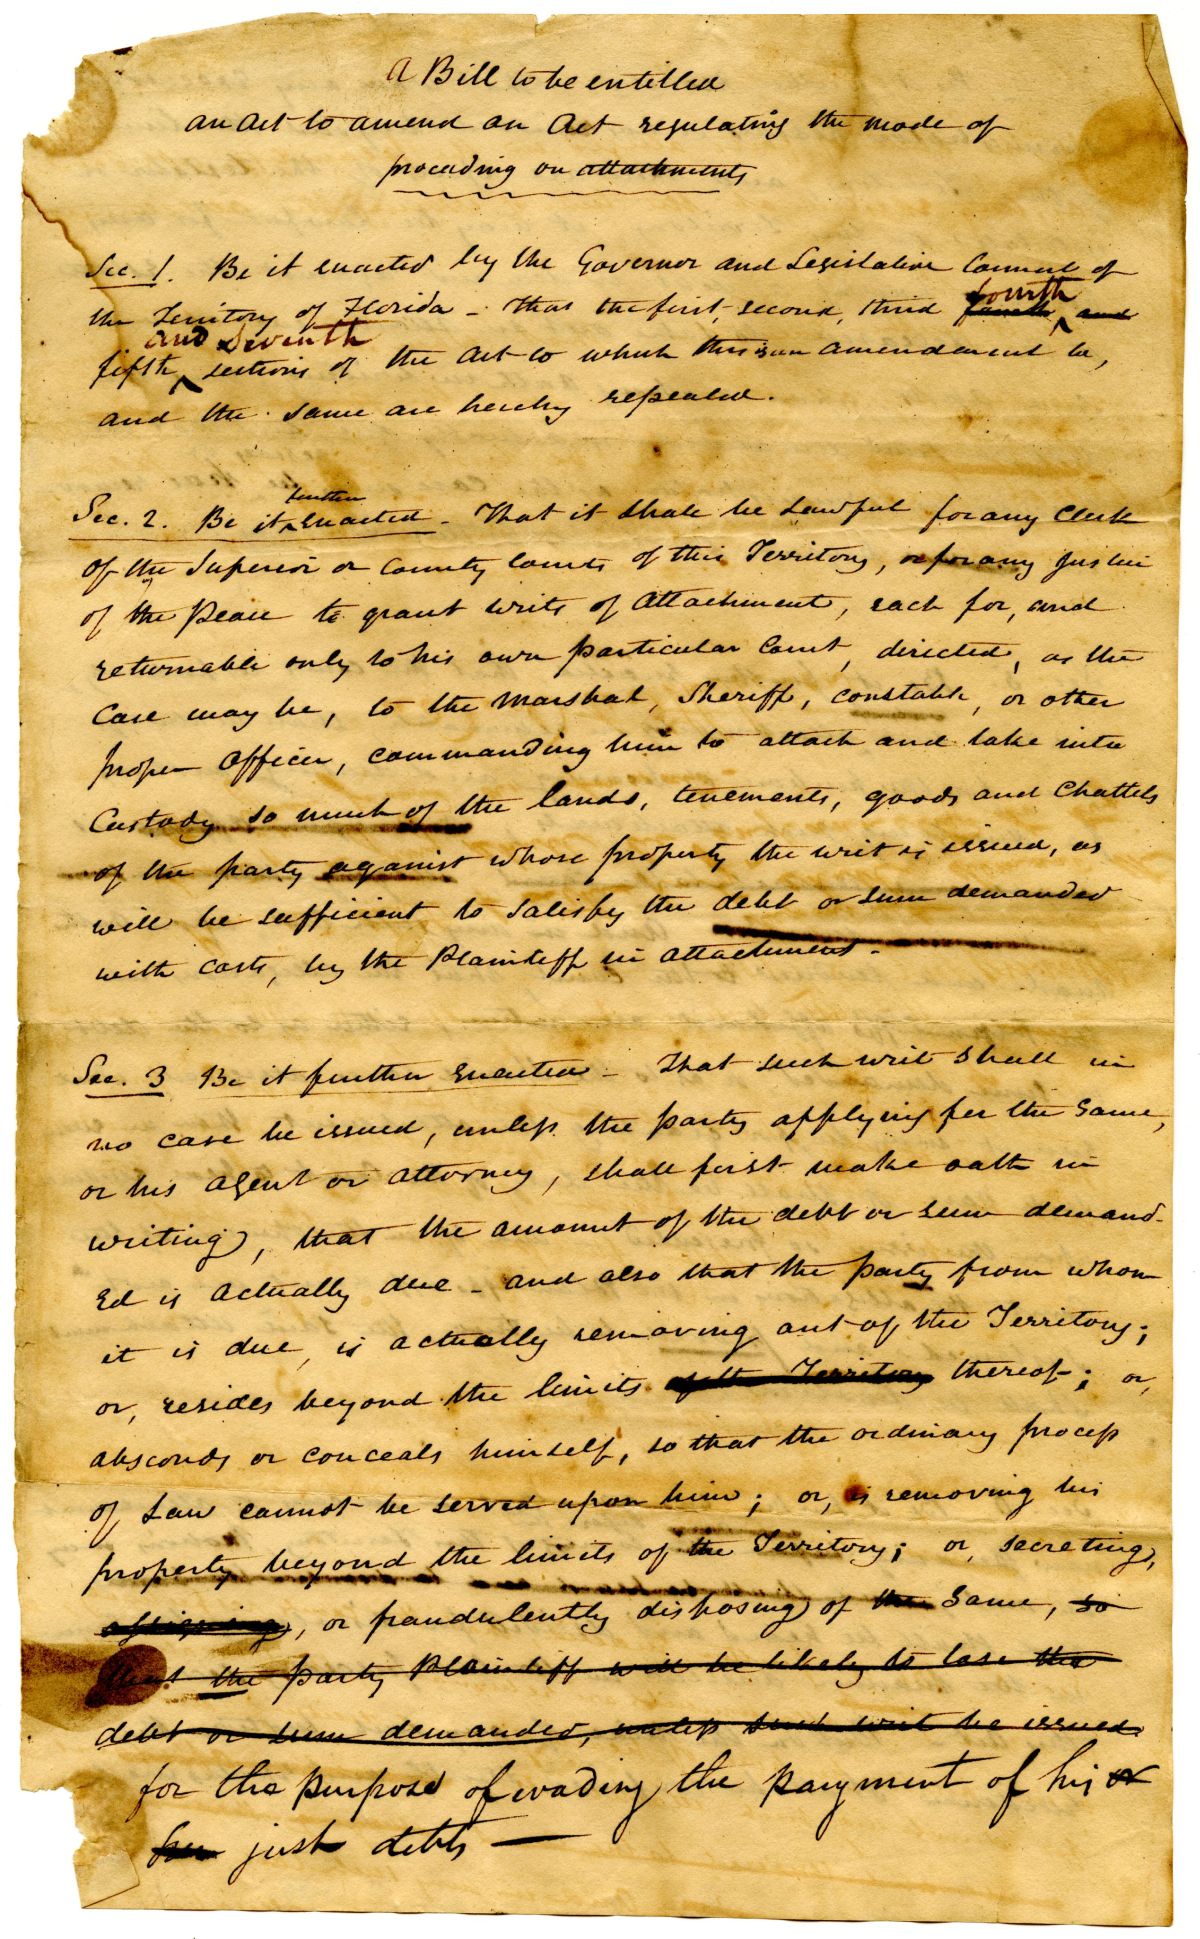 A Bill to be entitled
an Act to amend an Act regulating the mode of
proceeding on attachments
Sec. 1. Be it enacted by the Governor and Legislative Council of
the Territory of Florida - That the first, second, third fourth fourth, and
and Seventh
fifth sections of the Act to which this is an amendment be,
and the same are hereby repealed.
further
Sec. 2. Be it enacted - That it shall be Lawful for any Clerk
of the Superior or County Courts of this Territory, or for any Justice
of the Peace to grant writs of Attachment, each for, and
returnable only to his own particular Court, directed, as the
Case may be, to the Marshal, Sheriff, constable, or other
proper Officer, commanding him to attach and take into
Custody so much of the lands, tenements, goods and Chattels
of the party against whose property the writ is issued, as
will be sufficient to satisfy the debt or sum demanded
with costs, by the Plaintiff in attachment.
Sec. 3 Be it further Enacted - That such writ shall in
no case be issued, unless the party applying for the same,
or his agent or attorney, shall first make oath in
writing, that the amount of the debt or sum demand-
Ed is actually due - and also that the party from whom
it is due, is actually removing out of the Territory;
or, resides beyond the limits of the Territory thereof; or,
absconds or conceals himself, so that the ordinary process
of Law cannot be served upon him; or, is removing his
property beyond the limits of the Territory; or, secreting,
assigning, or fraudulently disposing of the same, so
that the party Plaintiff will be likely to lose the
debt or sum demanded, unless such writ be issued.
for the purpose of evading the payment of his or
her just debts —